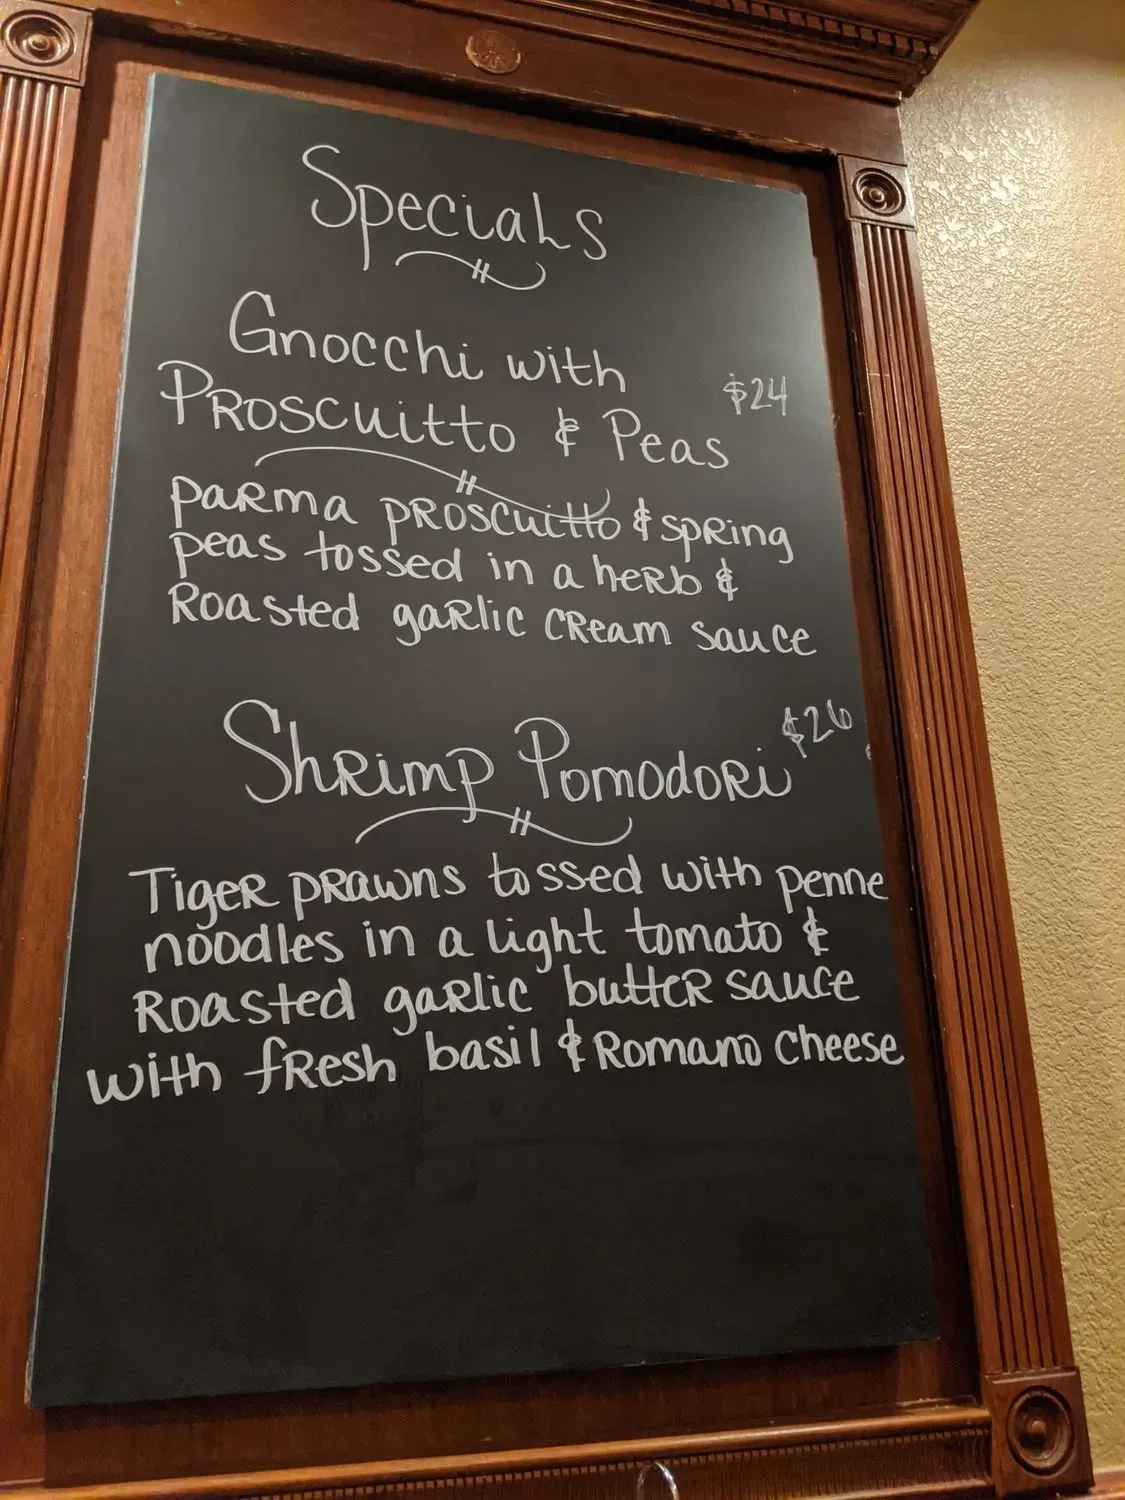 Specials
Gnocchi with
Proscuitto & Peas $24
parma proscuitto & spring
peas tossed in a herb &
Roasted garlic cream sauce
Shrimp Pomodori $26
Tiger prawns tossed with penne
noodles in a light tomato &
Roasted garlic butter sauce
with fresh basil & Romano cheese